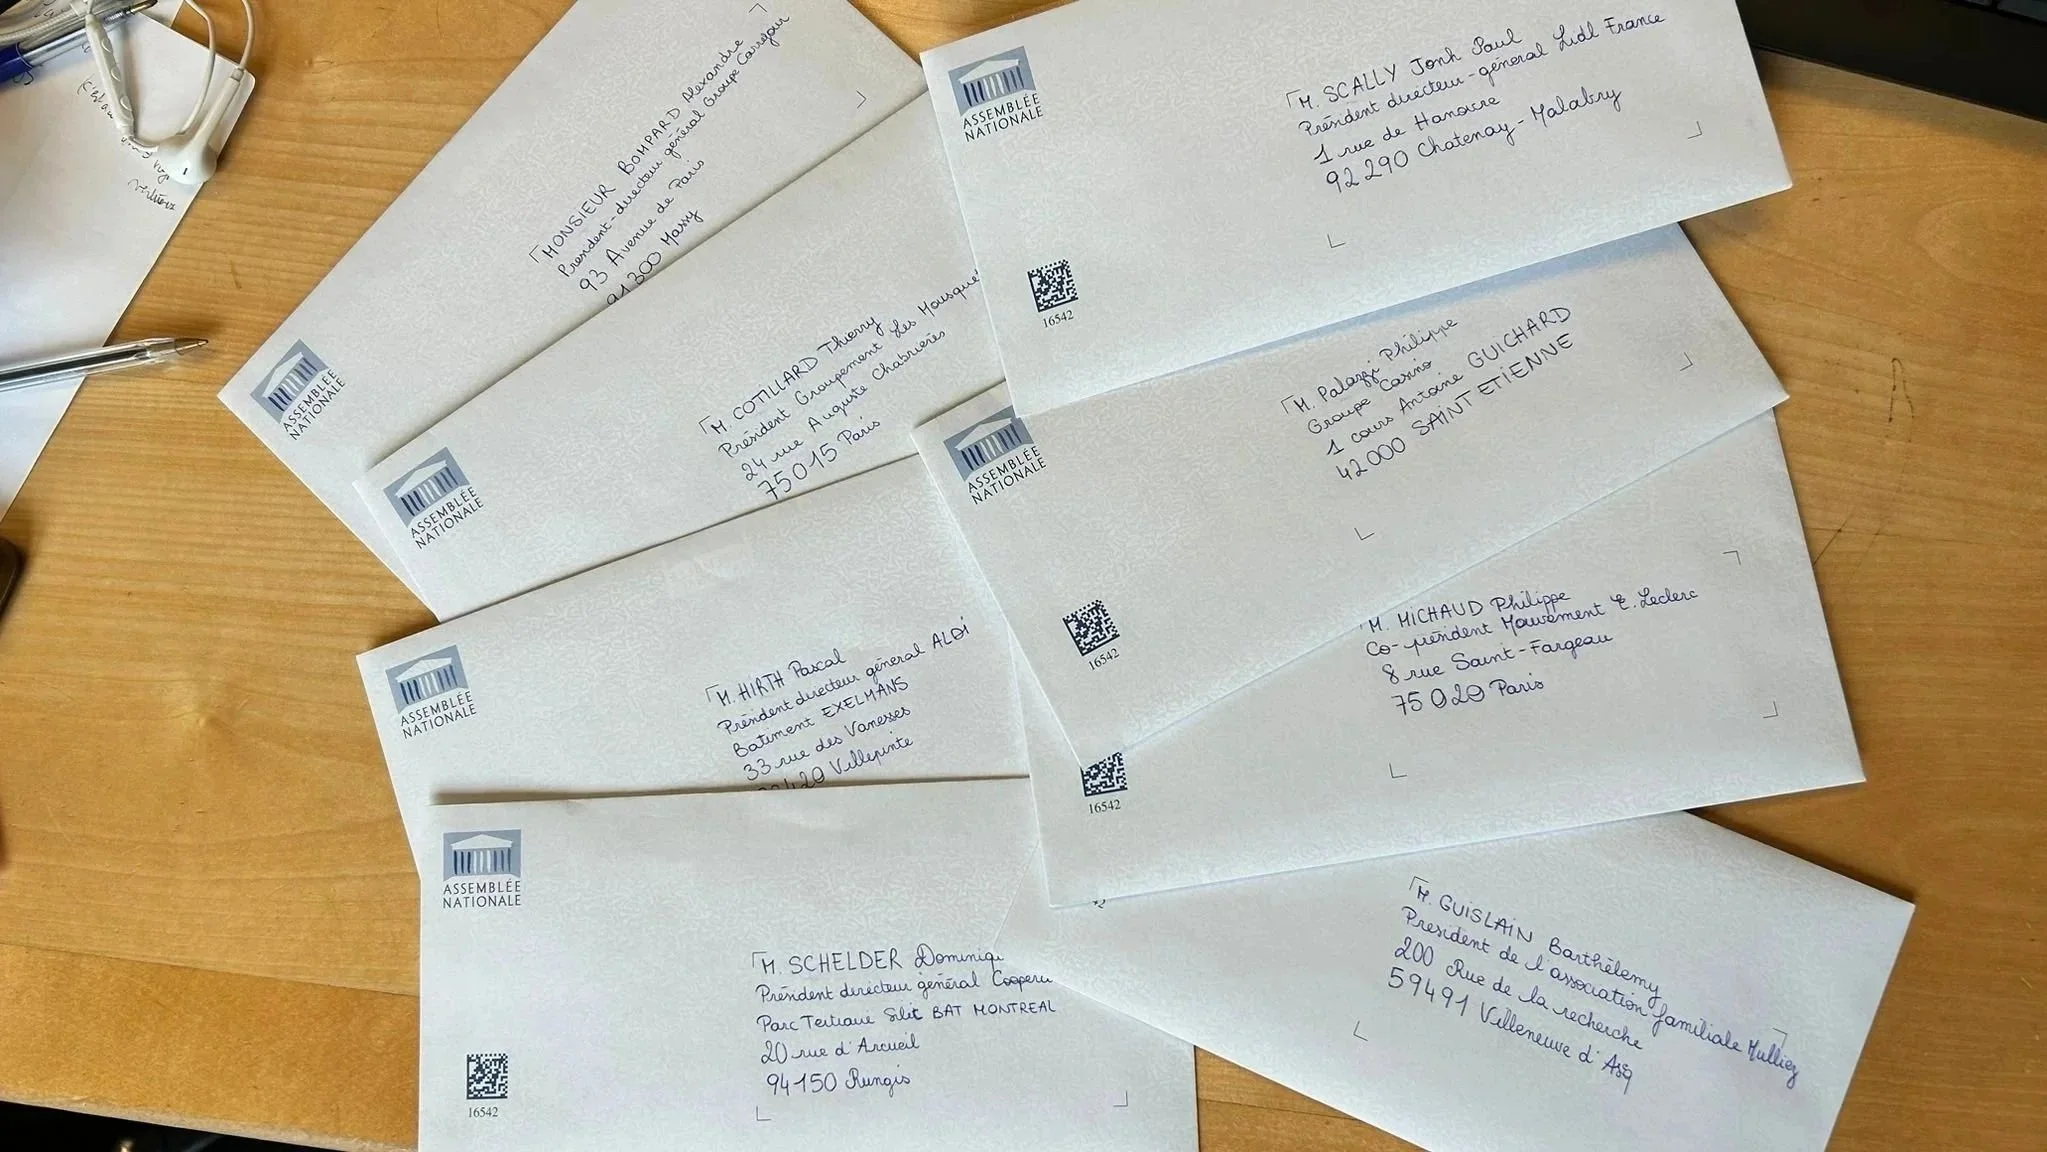 ASSEMBLÉE
NATIONALE
MONSIEUR BOMPARD Alexandre
Président-directeur général Groupe Carrefour
93 Avenue de Paris
91300 Massy
ASSEMBLÉE
NATIONALE
M. COTILLARD Thierry
Président Groupement Les Mousquet
24 rue Auguste Chabrières
75015 Paris
ASSEMBLÉE
NATIONALE
M. HIRTH Pascal
Président directeur général ALDI
Batiment EXELMANS
33 rue des Vanesses
420 Villepinte
ASSEMBLÉE
NATIONALE
M. SCHELDER Dominiqu
Président directeur général Cooperu
Parc Tertiaire Silic BAT MONTREAL
20 rue d'Arcueil
94150 Rungis
16542
ASSEMBLÉE
NATIONALE
M. SCALLY Jonh Paul
Président directeur-général Lidl France
1 rue de Hanovre
92290 Chatenay-Malabry
16542
ASSEMBLÉE
NATIONALE
M. Palazzi Philippe
Groupe Casino
1 cours Antoine GUICHARD
42000 SAINT ETIENNE
16542
M. MICHAUD Philippe
Co-président Mouvement E. Leclerc
8 rue Saint-Fargeau
75020 Paris
16542
M. GUISLAIN Barthélemy
Président de l'association familiale Mulliez
200 Rue de la recherche
59491 Villeneuve d'Asq